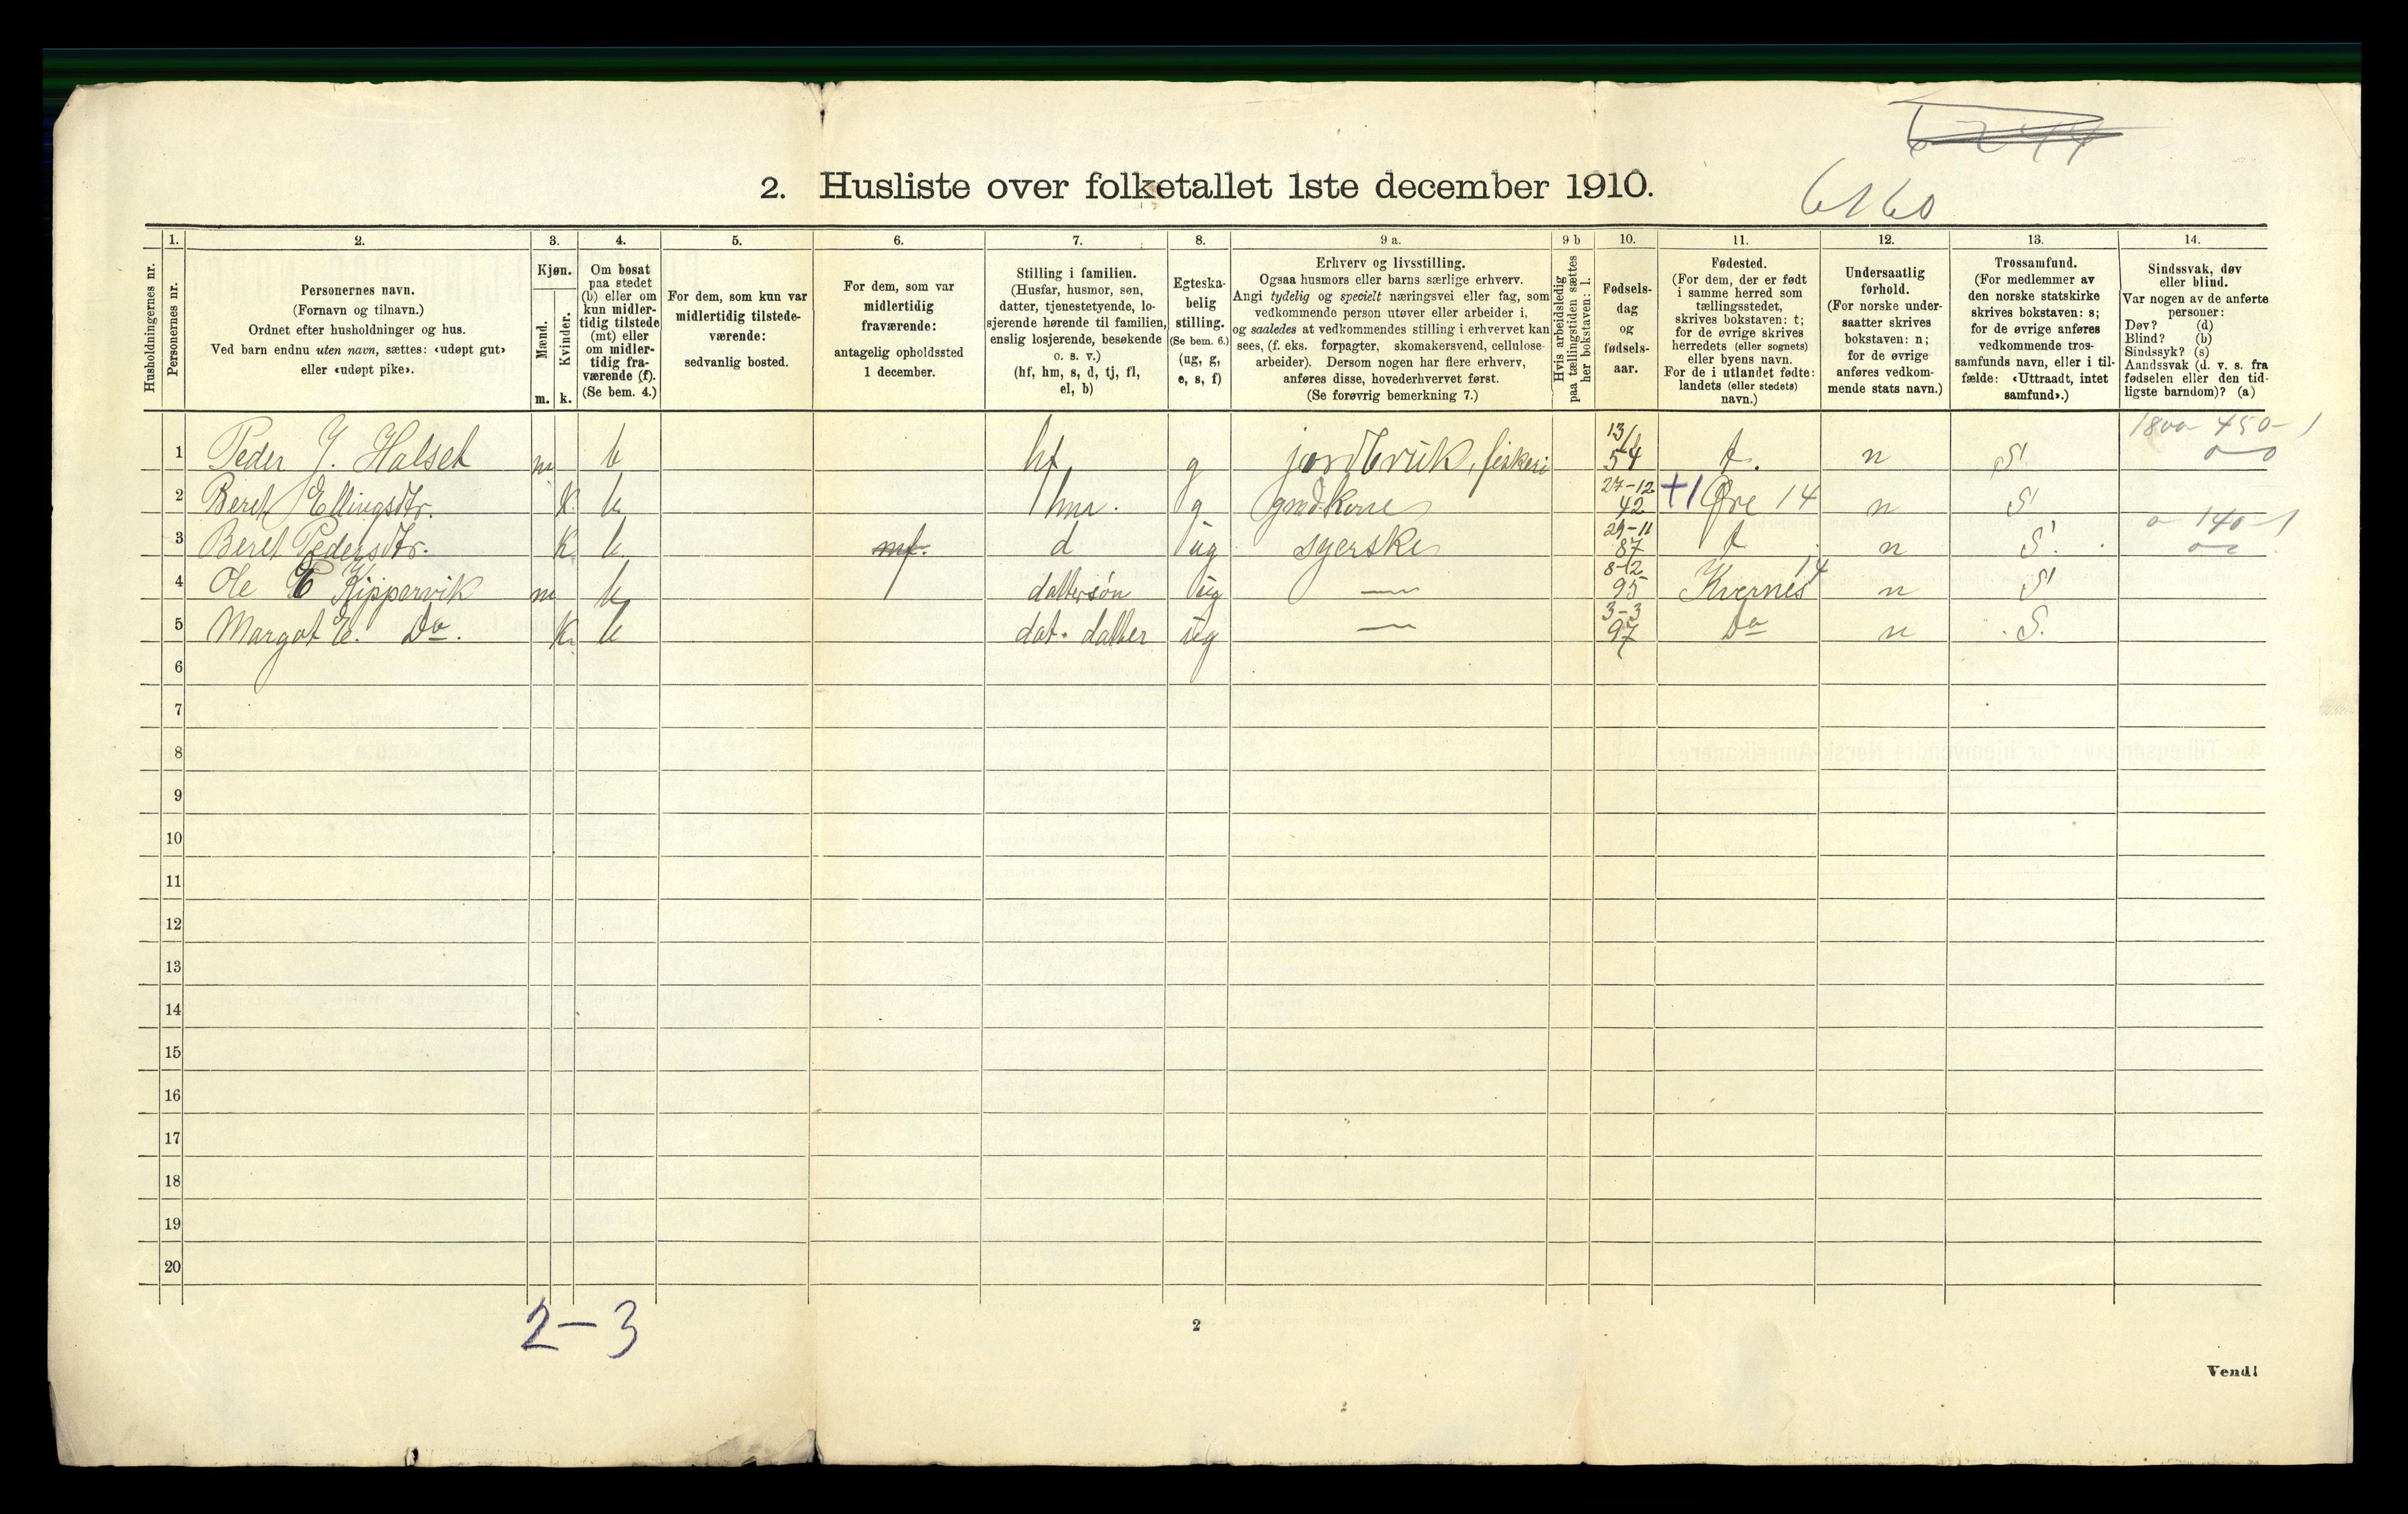 6160
2. Husliste over folketallet 1ste december 1910.
Husholdningernes nr.
1. Personernes nr.
2. Personernes navn.
(Fornavn og tilnavn.)
Ordnet efter husholdninger og hus.
Ved barn endnu uten navn, sættes: «udøpt gut»
eller «udøpt pike».
3. Kjøn.
Mænd. m.
Kvinder. k.
4. Om bosat
paa stedet
(b) eller om
kun midler-
tidig tilstede
(mt) eller
om midler-
tidig fra-
værende (f).
(Se bem. 4.)
5. For dem, som kun var
midlertidig tilstede-
værende:
sedvanlig bosted.
6. For dem, som var
midlertidig
fraværende:
antagelig opholdssted
1 december.
7. Stilling i familien.
(Husfar, husmor, søn,
datter, tjenestetyende, lo-
sjerende hørende til familien,
enslig losjerende, besøkende
o. s. v.)
(hf, hm, s, d, tj, fl,
el, b)
8. Egteska-
belig
stilling.
(Se bem. 6.)
(ug, g,
e, s, f)
9 a. Erhverv og livsstilling.
Ogsaa husmors eller barns særlige erhverv.
Angi tydelig og specielt næringsvei eller fag, som
vedkommende person utøver eller arbeider i,
og saaledes at vedkommendes stilling i erhvervet kan
sees, (f. eks. forpagter, skomakersvend, cellulose-
arbeider). Dersom nogen har flere erhverv,
anføres disse, hovederhvervet først.
(Se forøvrig bemerkning 7.)
9 b Hvis arbeidsledig
paa tællingstiden sættes
her bokstaven: l.
10. Fødsels-
dag
og
fødsels-
aar.
11. Fødested.
(For dem, der er født
i samme herred som
tællingsstedet,
skrives bokstaven: t;
for de øvrige skrives
herredets (eller sognets)
eller byens navn.
For de i utlandet fødte:
landets (eller stedets)
navn.)
12. Undersaatlig
forhold.
(For norske under-
saatter skrives
bokstaven: n;
for de øvrige
anføres vedkom-
mende stats navn.)
13. Trossamfund.
(For medlemmer av
den norske statskirke
skrives bokstaven: s;
for de øvrige anføres
vedkommende tros-
samfunds navn, eller i til-
fælde: «Uttraadt, intet
samfund».)
14. Sindssvak, døv
eller blind.
Var nogen av de anførte
personer:
Døv? (d)
Blind? (b)
Sindssyk? (s)
Aandssvak (d. v. s. fra
fødselen eller den tid-
ligste barndom)? (a)
1800 450-1
1 Peder J. Halset m b hf g jordbruk, fiskeri 54 t. n S
2 Beret Ellingsdtr. k b hm. g gmd.kone 27-12 42 +1 Øre 14 n S
0 140-1
3 Beret Pedersdtr. k b mf. d ug syerske 29-11 87 t n S.
4 Ole E Kippervik m b dattersøn ug — 8-12 95 Kvernes 14 n S
5 Margot E. Do. k b dat. datter ug — 3-3 97 Do n S.
6
7
8
9
10
11
12
13
14
15
16
17
18
19
20
2-3
2
Vend!